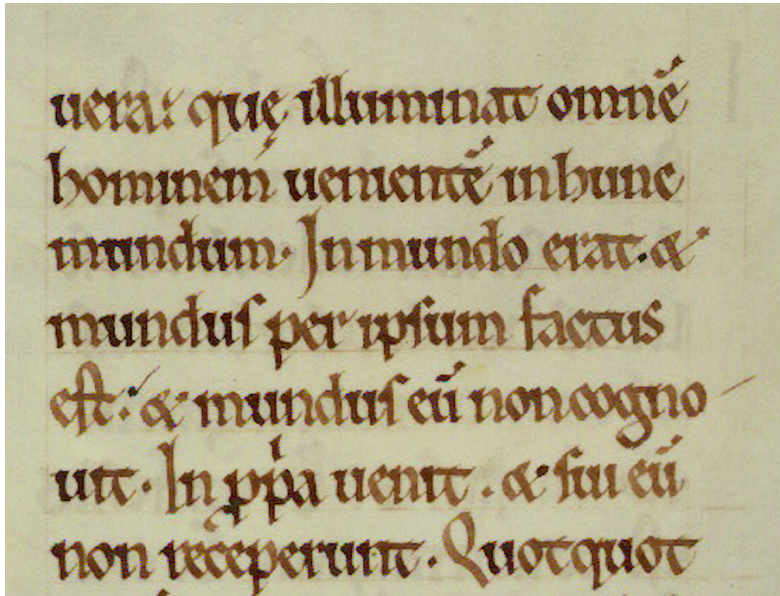 uera: quę illuminat omnē
hominem uenientē in hunc
mundum. In mundo erat. &
mundus per ipsum factus
est: & mundus eū non cogno
uit. In ppͥa uenit. & sui eū
non recēperunt. Quotquot